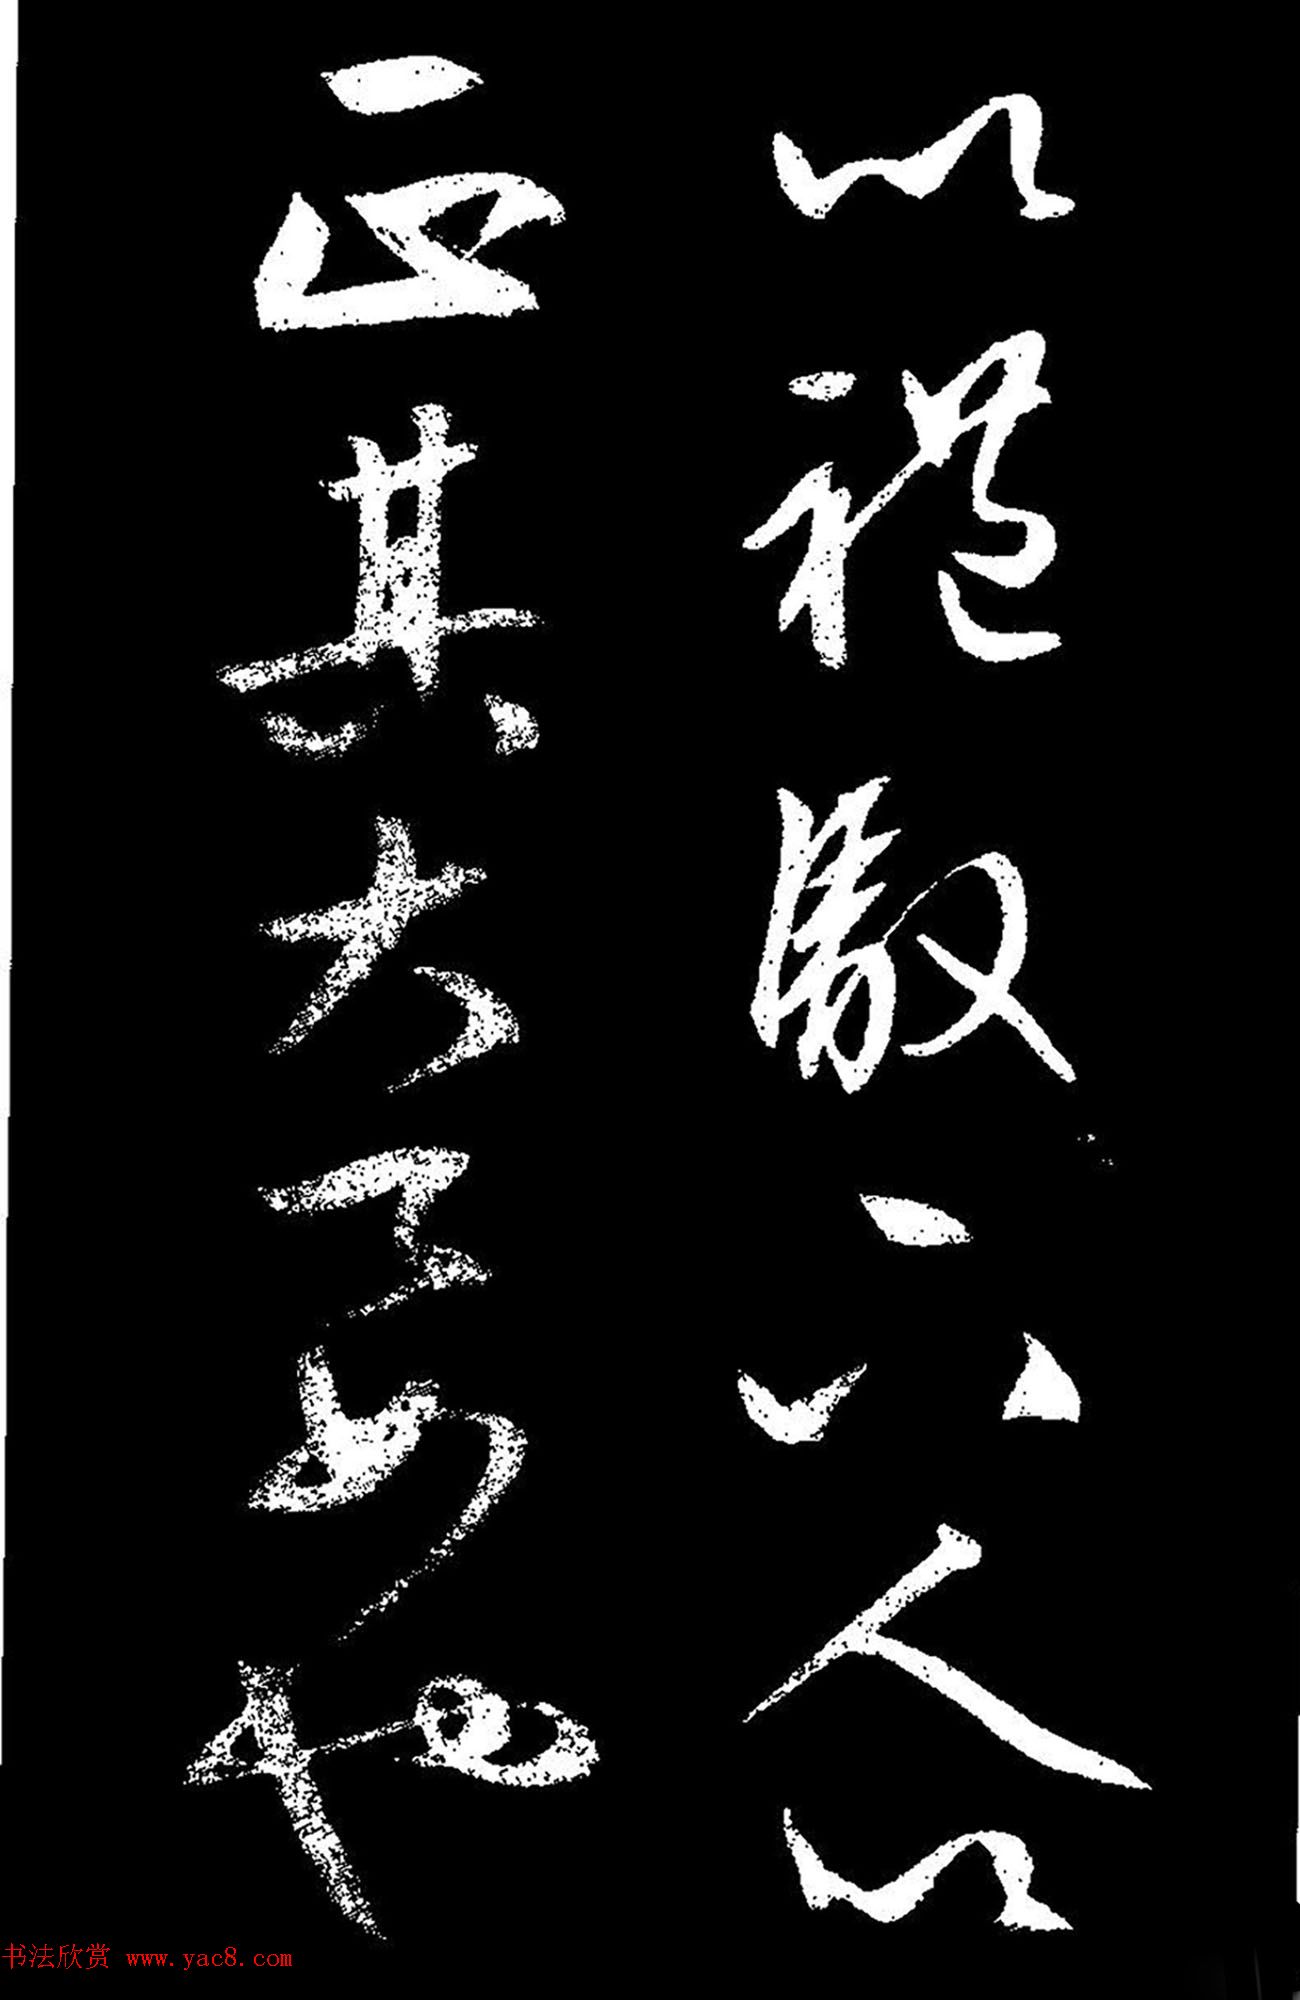 以禮馭六人以
正其大也
书法欣赏 www.yac8.com